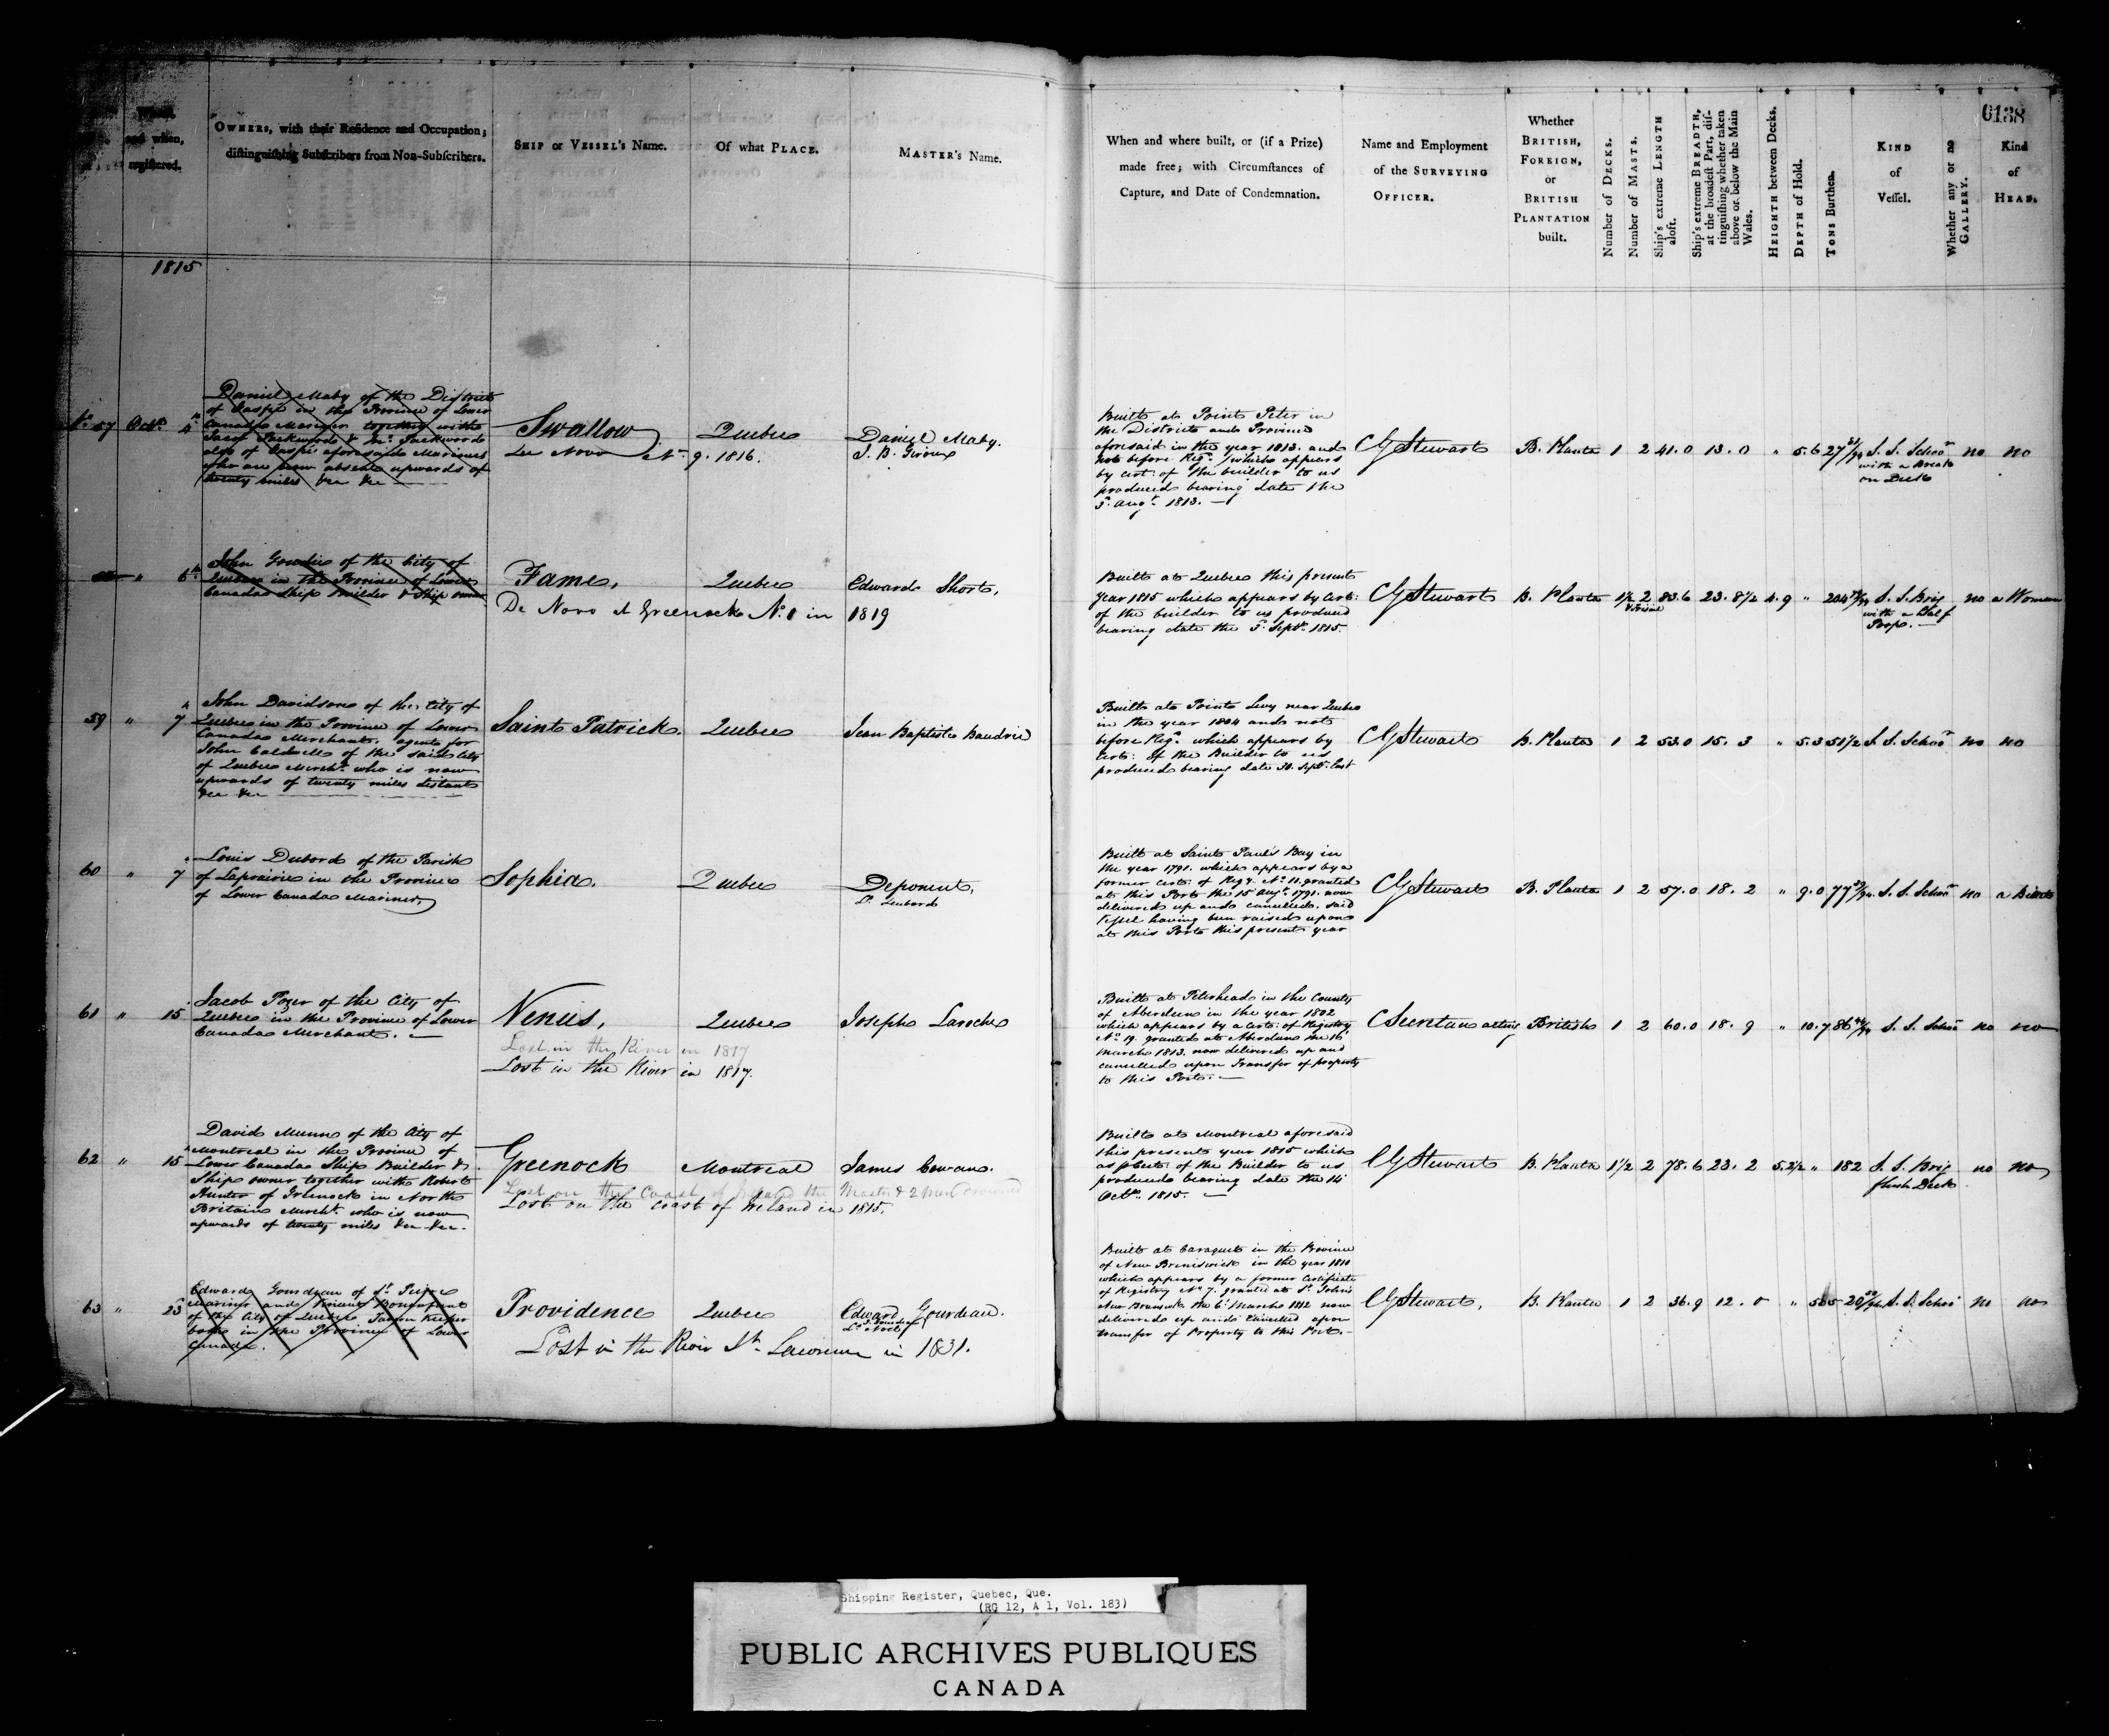 0138
When, and when, registered.
OWNERS, with their Residence and Occupation; distinguishing Subscribers from Non-Subscribers.
SHIP or VESSEL's Name.
Of what PLACE.
MASTER's Name.
When and where built, or (if a Prize) made free; with Circumstances of Capture, and Date of Condemnation.
Name and Employment of the SURVEYING OFFICER.
Whether BRITISH, FOREIGN, or BRITISH PLANTATION built.
Number of DECKS.
Number of MASTS.
Ship's extreme LENGTH aloft.
Ship's extreme BREADTH, at the broadest Part, distinguishing whether taken above or below the Main Wales.
HEIGHTH between Decks.
DEPTH of Hold.
TONS Burthen.
KIND of Vessel.
Whether any or no GALLERY.
Kind of HEAD.
1815
No 57 Octr 4th
Daniel Maby of the District
of Gaspé in the Province of Lower
Canada Mariner together with
Jacob Packwood & Jno Packwood
also of Gaspé aforesaid Mariners
who are now absent upwards of
twenty miles &c &c
Swallow
De Novo No 9. 1816.
Quebec
Daniel Maby.
J. B. Giroux
Built at Point Peter in
the District and Province
aforesaid in the year 1813. and
not before Regd which appears
by cert. of the builder to us
produced bearing date the
3d Augt 1813.
CG Stewart
B. Planta 1 2 41.0 13.0 " 5.6 27 S. S. Schoor
with a break
on Deck
no no
" 6th
John Goudie of the City of
Quebec in the Province of Lower
Canada Ship Builder & Ship owner
Fame,
Quebec
Edward Short,
De Novo at Greenock No 1 in 1819
Built at Quebec this present
year 1815 which appears by cert:
of the builder to us produced
bearing date the 5th Septr 1815.
CG Stewart
B. Planta 1½ 2 83.6 23.8½ 4.9 " 204 S. S. Brig
with a Half
Poop.
no a Woman
59 " 7th
John Davidson of the City of
Quebec in the Province of Lower
Canada Merchant. agent for
John Caldwell of the said City
of Quebec Mercht who is now
upwards of twenty miles distant
&c &c
Saint Patrick. Quebec Jean Baptiste Baudrie
Built at Point Levy near Quebec
in the year 1804 and not
before Regd which appears by
Cert: of the Builder to us
produced bearing date 30. Septr last
CG Stewart
B. Planta 1 2 53.0 15.3 " 5.3 51½ S. S. Schoor no no
60 " 7
Louis Dubord of the Parish
of Laprairie in the Province
of Lower Canada Mariner
Sophia. Quebec Deponent,
Built at Saint Paul's Bay in
the year 1791. which appears by a
former Cert: of Regy. No 11. granted
at this Port the 15 Augt 1791. now
delivered up and cancelled. said
Vessel having been raised upon
at this Port this present year
CG Stewart
B. Planta 1 2 57.0 18.2 " 9.0 77 S. S. Schoor no
61 " 15
Jacob Pozer of the City of
Quebec in the Province of Lower
Canada Merchant.
Venus, Quebec Joseph Laroche
Lost in the River in 1817
Lost in the River in 1817.
Built at Peterhead in the County
of Aberdeen in the year 1802
which appears by a Cert: of Registry
No 19. granted at Aberdeen the 16
March 1813. now delivered up and
cancelled upon Transfer of property
to this Port.
C Secretan acting
British 1 2 60.0 18.9 " 10.7 86 S. S. Schoor no no
62 " 15
David Munn of the City of
Montreal in the Province of
Lower Canada Ship Builder &
Ship owner together with Robert
Hunter of Greenock in North
Britain Mercht who is now
upwards of twenty miles &c &c.
Greenock Montreal James Cowan.
Lost on the Coast of Ireland the Master & 2 Men drowned
Lost on the Coast of Ireland in 1815.
Built at Montreal aforesaid
this present year 1815 which
as p Cert: of the Builder to us
produced bearing date the 14
Octr 1815.
CG Stewart
B. Planta 1½ 2 78.6 23.2 5.2½ " 182 S. S. Brig
flush Deck
no no
63 " 23
Edward Gourdeau of St
Mariner and
of the City of Quebec Tavern Keeper
both in the Province of Lower
Canada.
Providence Quebec Edward Gourdeau.
Lost in the River St Lawrence in 1831.
Built at Caraquet in the Province
of New Brunswick in the year 1810
which appears by a former Certificate
of Registry No 7. granted at St John's
New Brunswick the 6th March 1812 now
delivered up and Cancelled upon
transfer of Property to this Port.
CG Stewart,
B. Planta 1 2 36.9 12.0 " 20 S. S. Schoor no no
Shipping Register, Quebec, Que.
(RG 12, A 1, Vol. 183)
PUBLIC ARCHIVES PUBLIQUES
CANADA